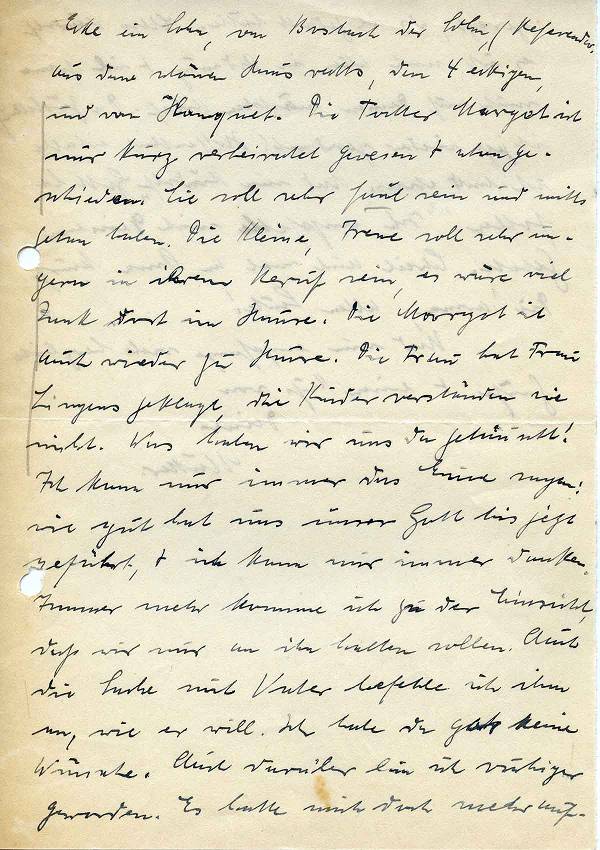 Ecke ein Sohn, von Bosbach der Sohn, (Referendar,
aus dem schönen Haus rechts, den 4 eckigen,
und von Hanquet. Die Tochter Margot ist
nur kurz verheiratet gewesen + schon ge-
schieden. Sie soll sehr faul sein und nichts
getan haben. Die Kleine, Irene soll sehr un-
gern in ihrem Beruf sein, es wäre viel
Zank dort im Hause. Die Margot ist
auch wieder zu Hause. Die Frau hat Frau
Lingens geklagt, die Kinder verständen sie
nicht. Was haben wir uns da getäuscht!
Ich kann nur immer das Eine sagen:
wie gut hat uns unser Gott bis jetzt
geführt, + ich kann nur immer danken.
Immer mehr komme ich zu der Einsicht,
daß wir nur an ihn halten sollen. Auch
die Sache mit Vater befehle ich ihm
an, wie er will. Ich habe da gar keine
Wünsche. Auch darüber bin ich ruhiger
geworden. Es hatte mich doch mehr auf-